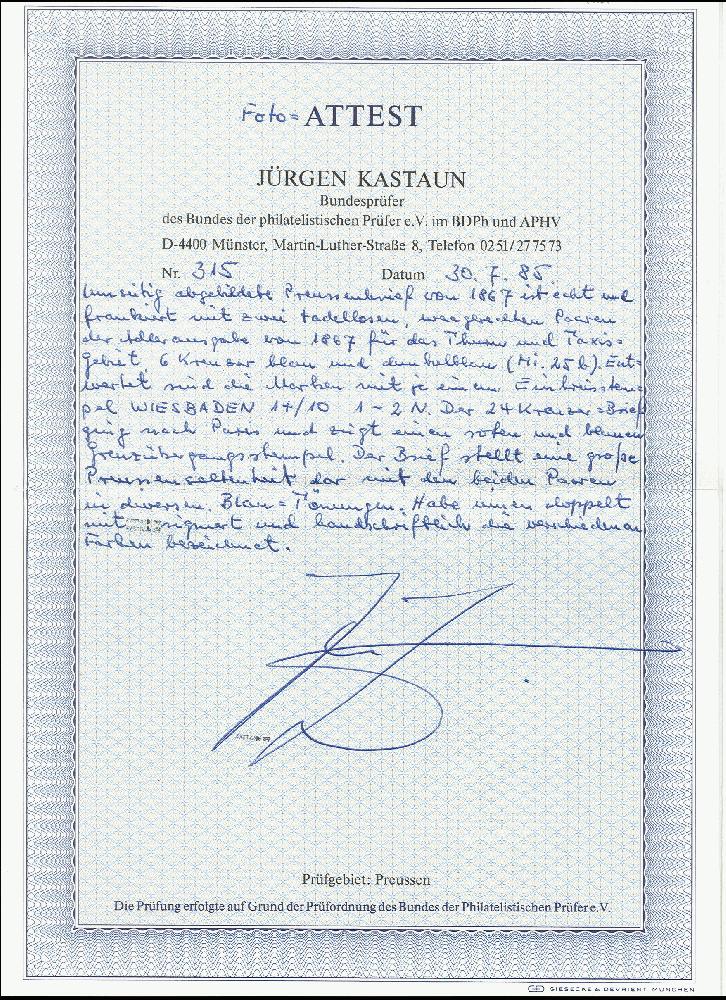 Foto= ATTEST
JÜRGEN KASTAUN
Bundesprüfer
des Bundes der philatelistischen Prüfer e.V. im BDPh und APHV
D-4400 Münster, Martin-Luther-Straße 8, Telefon 0251/277573
Nr. 315 Datum 30. 7. 85
Umseitig abgebildete Preussenbrief von 1867 ist echt und
frankiert mit zwei tadellosen, waagerechten Paaren
der Adlerausgabe von 1867 für das Thurn und Taxis=
gebiet 6 Kreuzer blau und dunkelblau (Mi. 25 b). Ent=
wertet sind die Marken mit je einem Einkreisstem
pel WIESBADEN 14/10 1-2 N. Der 24 Kreuzer=Brief
ging nach Paris und zeigt einen roten und blauen
Grenzübergangsstempel. Der Brief stellt eine große
Preussenseltenheit dar mit den beiden Paaren
in diversen Blau=Tönungen. Habe innen doppelt
mit signiert und handschriftlich die verschiedenen
Farben bezeichnet.
Prüfgebiet: Preussen
Die Prüfung erfolgte auf Grund der Prüfordnung des Bundes der Philatelistischen Prüfer e.V.
GIESECKE & DEVRIENT MÜNCHEN